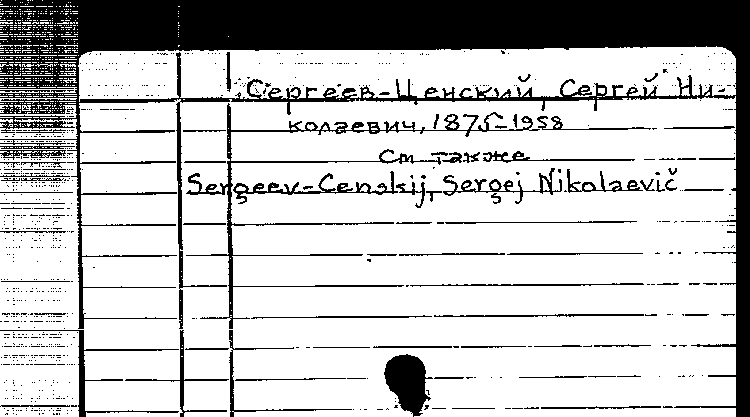 Сергеев-Ценский, Сергей Ни-
колаевич, 1875-1958
См также
Sergeev-Censkij, Sergej Nikolaevič